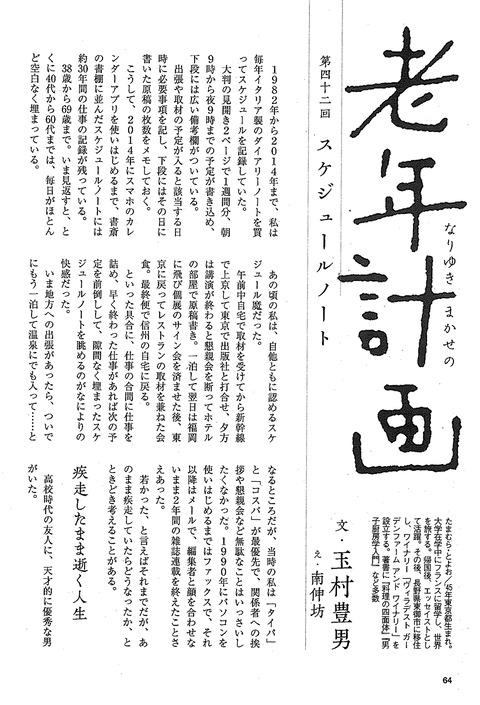 なりゆき まかせの
老年計画
第四十二回 スケジュールノート
文・玉村豊男
え・南伸坊
たまむら・とよお/'45年東京都生まれ。
大学在学中にフランスに留学し、世界
を旅する。帰国後、エッセイストとし
て活躍。その後、長野県東御市に移住
し、ワイナリー「ヴィラデスト ガー
デンファーム アンド ワイナリー」を
設立する。著書に『料理の四面体』『男
子厨房学入門』など多数
1982年から2014年まで、私は
毎年イタリア製のダイアリーノートを買
ってスケジュールを記録していた。
大判の見開き2ページで1週間分、朝
9時から夜9時までの予定が書き込め、
下段には広い備考欄がついている。
出張や取材の予定が入ると該当する日
時に必要事項を記し、下段にはその日に
書いた原稿の枚数をメモしておく。
こうして、2014年にスマホのカレ
ンダーアプリを使いはじめるまで、書斎
の書棚に並んだスケジュールノートには
約30年間の仕事の記録が残っている。
38歳から69歳まで。いま見返すと、と
くに40代から60代までは、毎日がほとん
ど空白なく埋まっている。
あの頃の私は、自他ともに認めるスケ
ジュール魔だった。
午前中自宅で取材を受けてから新幹線
で上京して東京で出版社と打合せ、夕方
は講演が終わると懇親会を断ってホテル
の部屋で原稿書き。一泊して翌日は福岡
に飛び個展のサイン会を済ませた後、東
京に戻ってレストランの取材を兼ねた会
食。最終便で信州の自宅に戻る。
といった具合に、仕事の合間に仕事を
詰め、早く終わった仕事があれば次の予
定を前倒しして、隙間なく埋まったスケ
ジュールノートを眺めるのがなによりの
快感だった。
いま地方への出張があったら、ついで
にもう一泊して温泉にでも入って……と
なるところだが、当時の私は「タイパ」
と「コスパ」が最優先で、関係者への挨
拶や懇親会など無駄なことはいっさいし
たくなかった。1990年にパソコンを
使いはじめるまではファックスで、それ
以降はメールで、編集者と顔を合わせな
いまま2年間の雑誌連載を終えたことさ
えあった。
若かった、と言えばそれまでだが、あ
のまま疾走していたらどうなったか、と
ときどき考えることがある。
疾走したまま逝く人生
高校時代の友人に、天才的に優秀な男
がいた。
64